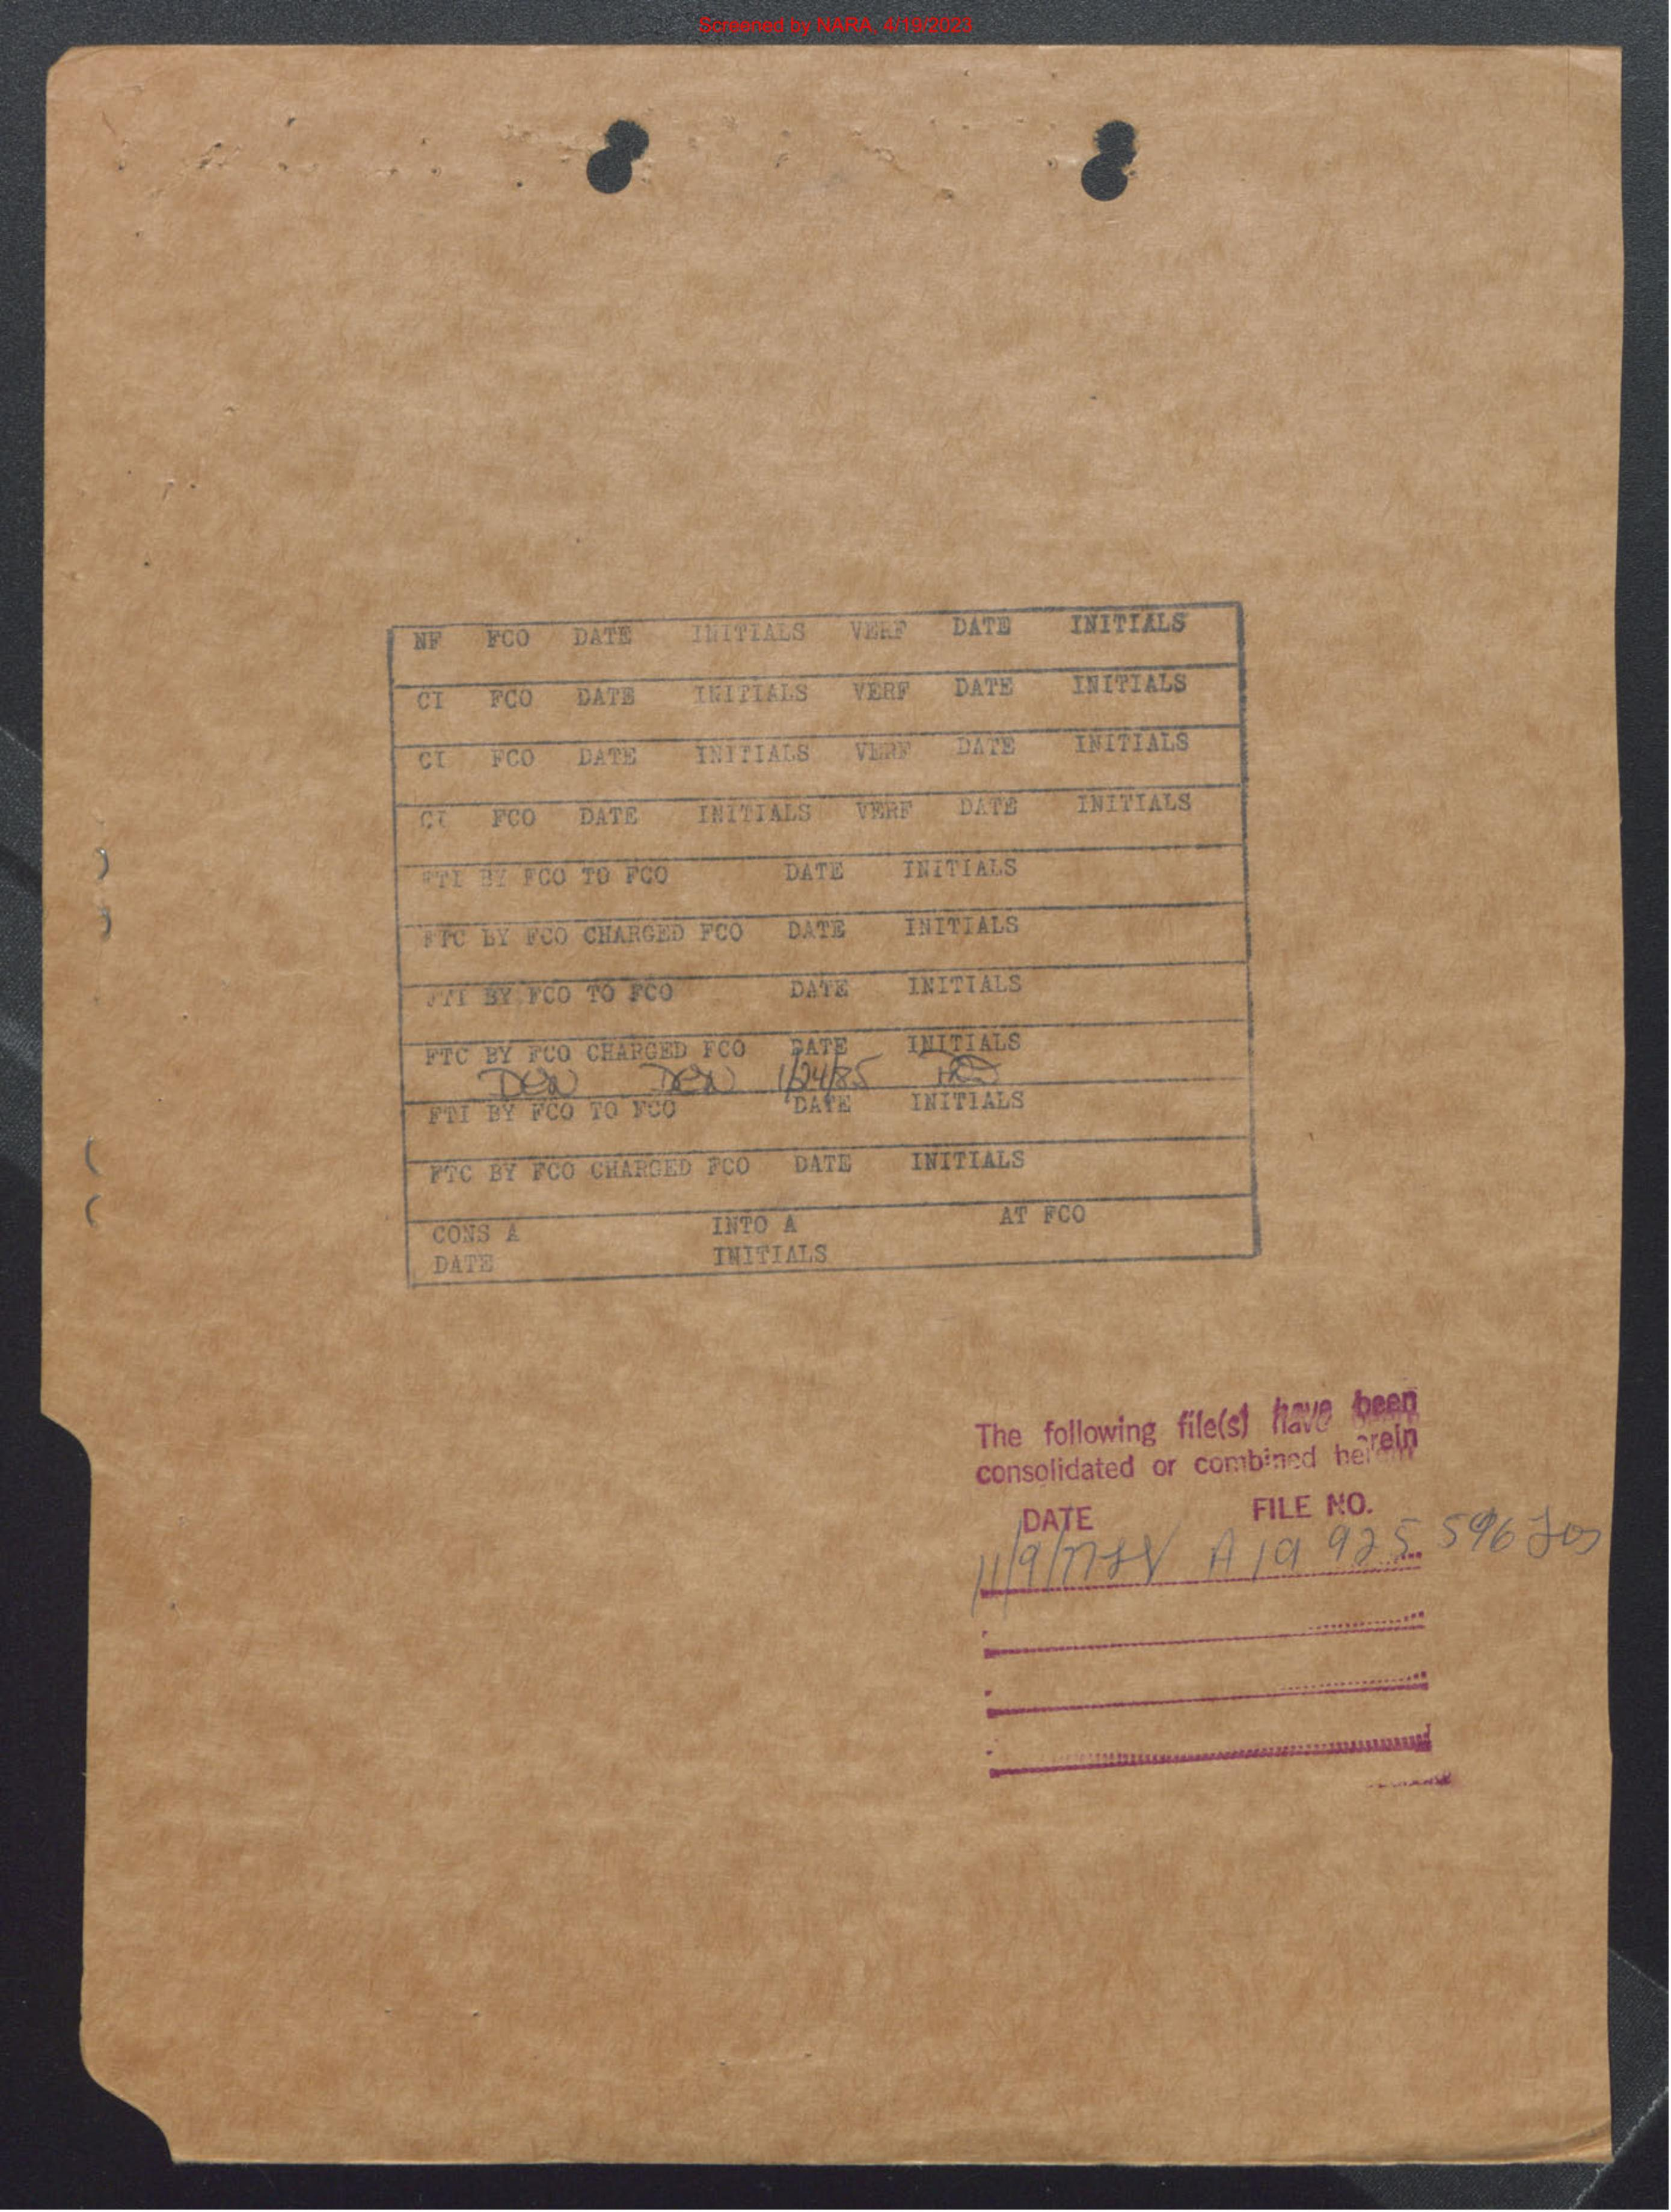 Screened by NARA, 4/19/2023
NF FCO DATE INITIALS VERF DATE INITIALS
CI FCO DATE INITIALS VERF DATE INITIALS
CI FCO DATE INITIALS VERF DATE INITIALS
CI FCO DATE INITIALS VERF DATE INITIALS
FTI BY FCO TO FCO DATE INITIALS
FTC BY FCO CHARGED FCO DATE INITIALS
FTI BY FCO TO FCO DATE INITIALS
FTC BY FCO CHARGED FCO DATE INITIALS
DEN DEN 1/24/85
FTI BY FCO TO FCO DATE INITIALS
FTC BY FCO CHARGED FCO DATE INITIALS
CONS A INTO A AT FCO
DATE INITIALS
The following file(s) have been
consolidated or combined herein
DATE FILE NO.
11/9/77 A 19 925 596